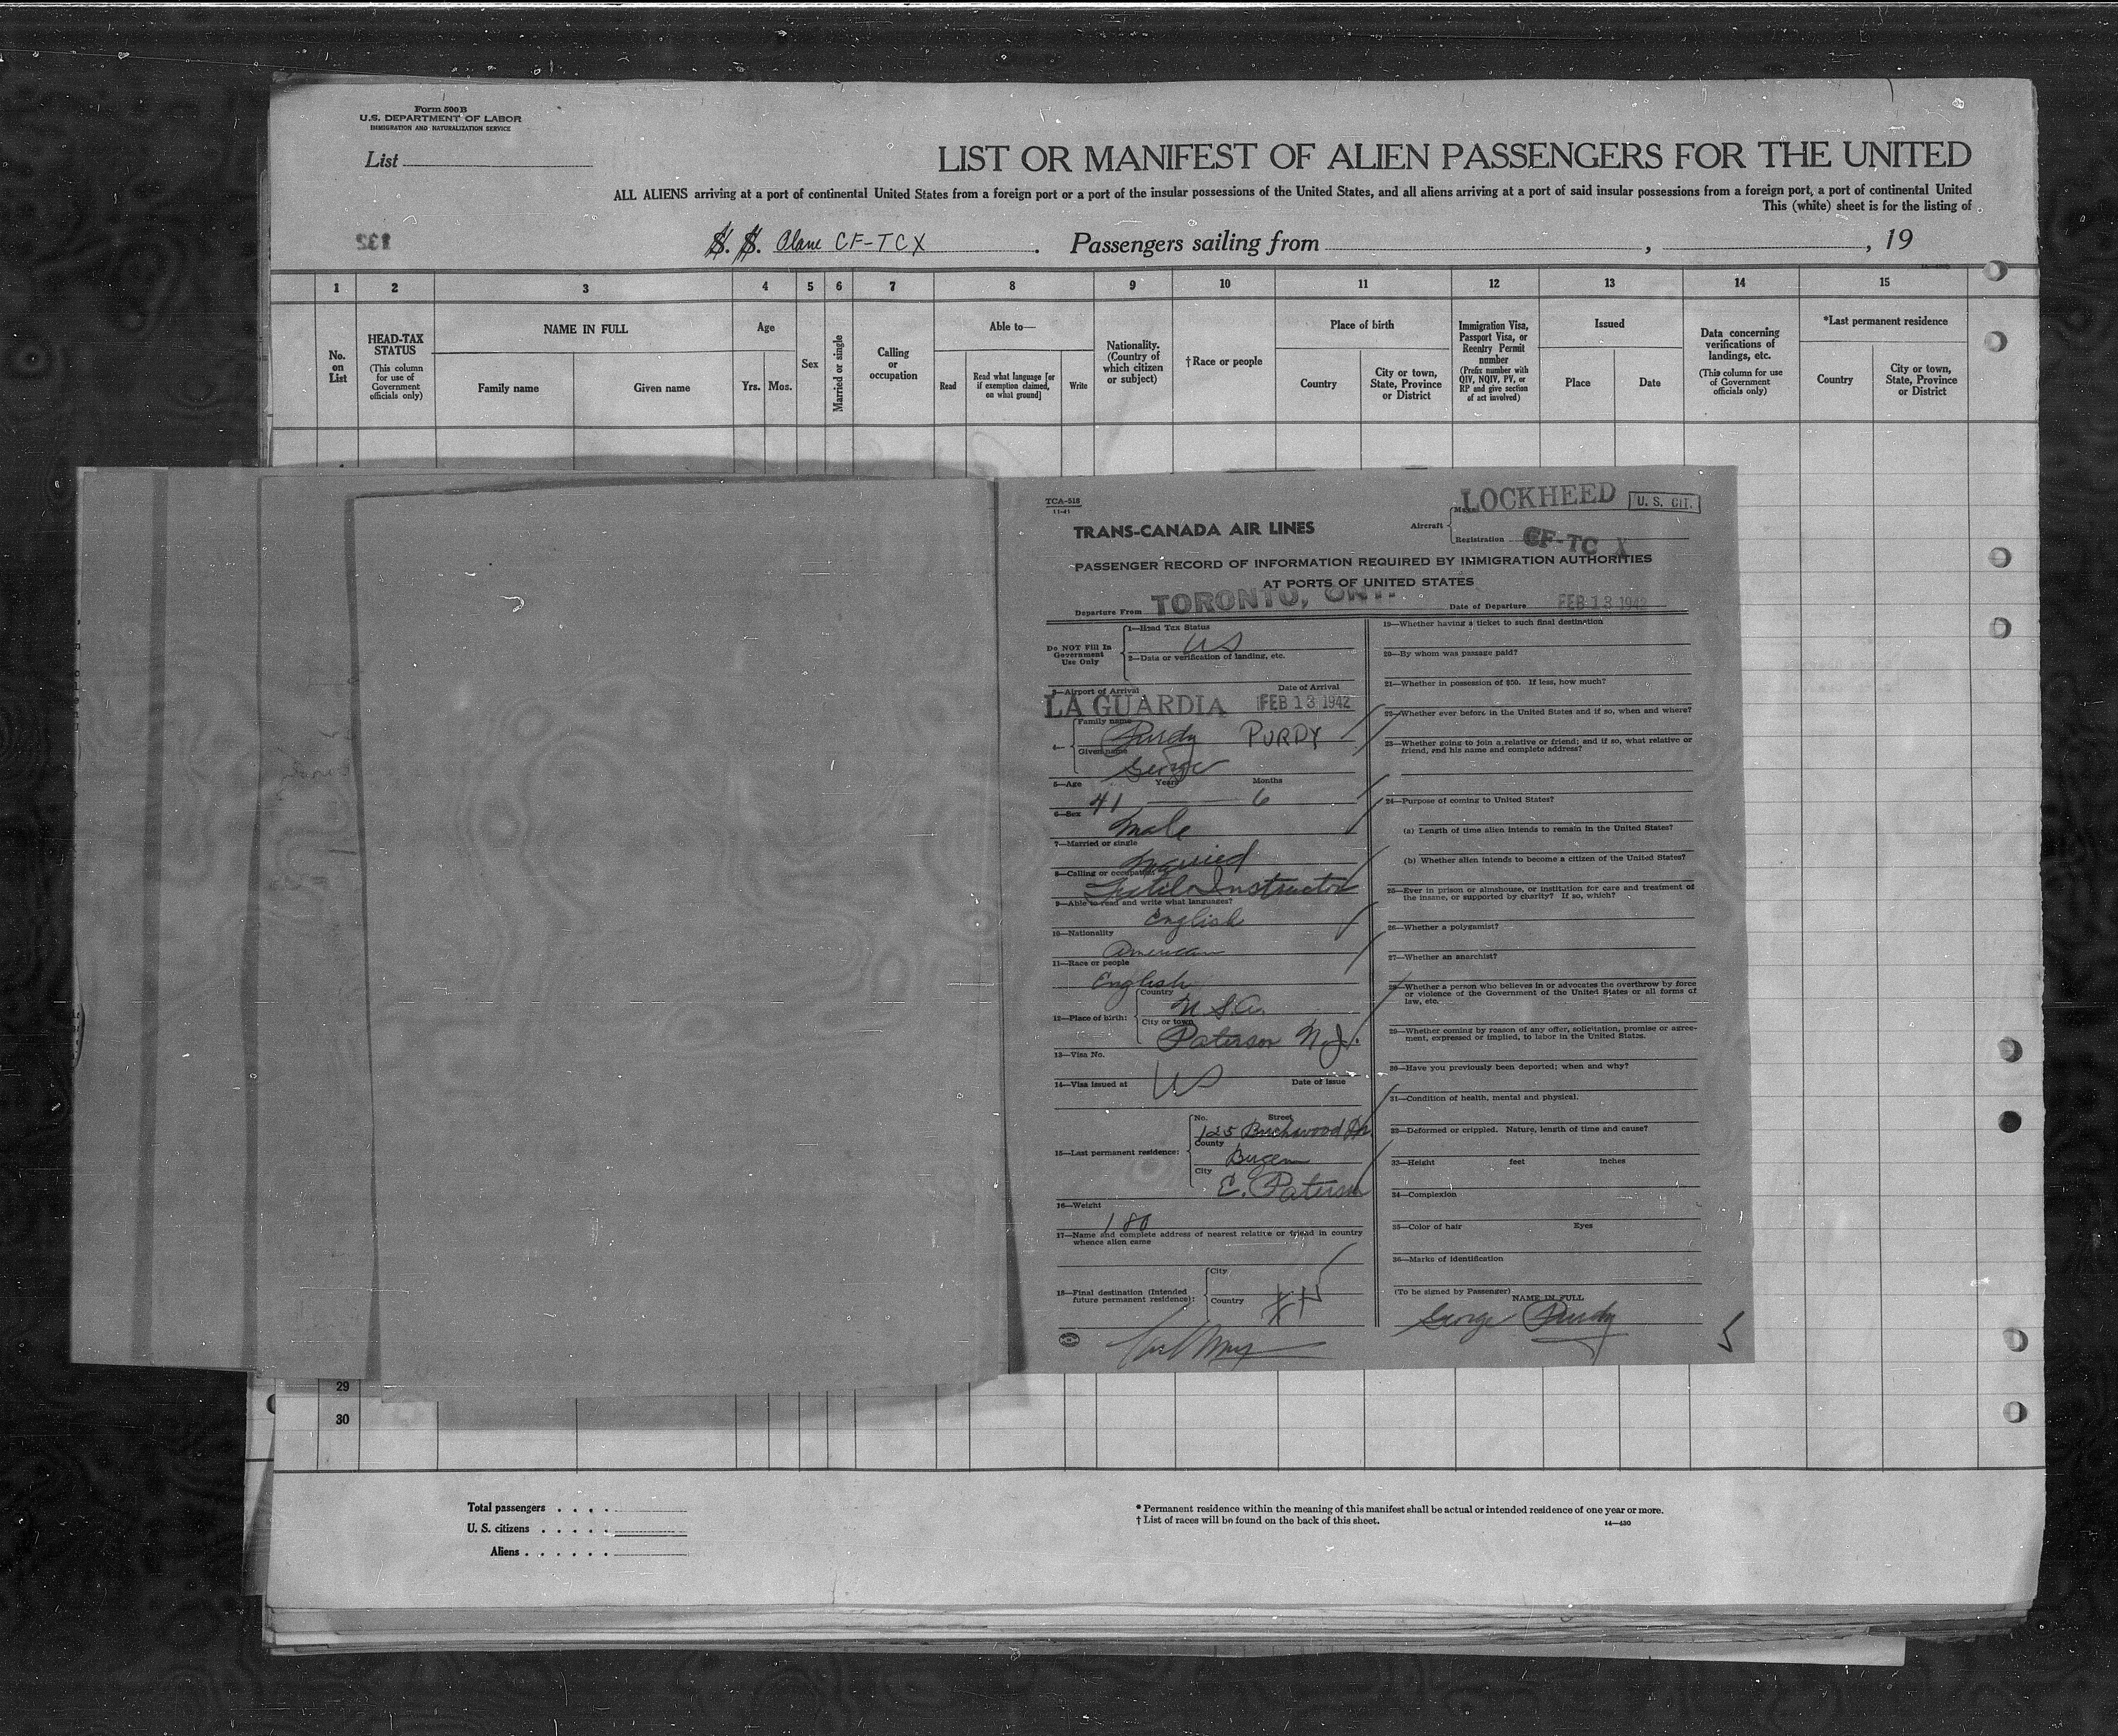 Form 500B
U.S. DEPARTMENT OF LABOR
IMMIGRATION AND NATURALIZATION SERVICE
List
LIST OR MANIFEST OF ALIEN PASSENGERS FOR THE UNITED
ALL ALIENS arriving at a port of continental United States from a foreign port or a port of the insular possessions of the United States, and all aliens arriving at a port of said insular possessions from a foreign port, a port of continental United
This (white) sheet is for the listing of
132
S. S. Plane CF-TCX. Passengers sailing from , , 19
1 2 3 4 5 6 7 8 9 10 11 12 13 14 15
No. on List
HEAD-TAX STATUS
(This column for use of Government officials only)
NAME IN FULL
Family name
Given name
Age
Yrs. Mos.
Sex
Married or single
Calling or occupation
Able to—
Read
Read what language [or if exemption claimed, on what ground]
Write
Nationality. (Country of which citizen or subject)
†Race or people
Place of birth
Country
City or town, State, Province or District
Immigration Visa, Passport Visa, or Reentry Permit number
(Prefix number with QIV, NQIV, PV, or RP and give section of act involved)
Issued
Place
Date
Data concerning verifications of landings, etc.
(This column for use of Government officials only)
*Last permanent residence
Country
City or town, State, Province or District
TCA-518
11-41
TRANS-CANADA AIR LINES
Aircraft
Make LOCKHEED
U. S. CIT.
Registration CF-TC X
PASSENGER RECORD OF INFORMATION REQUIRED BY IMMIGRATION AUTHORITIES
AT PORTS OF UNITED STATES
Departure From TORONTO, ONT. Date of Departure FEB 13 1942
Do NOT Fill In Government Use Only
1—Head Tax Status
US
2—Data or verification of landing, etc.
3—Airport of Arrival Date of Arrival
LA GUARDIA FEB 13 1942
4—
Family name
Purdy PURDY
Given name
George
5—Age Years Months
41 6
6—Sex
Male
7—Married or single
Married
8—Calling or occupation
Textil Instructor
9—Able to read and write what languages?
English
10—Nationality
American
11—Race or people
English
12—Place of birth:
Country
U.S.A.
City or town
Paterson N.J.
13—Visa No.
14—Visa issued at Date of issue
US
15—Last permanent residence:
No. Street
125 Birchwood Dr
County
Bergen
City
E. Paterson
16—Weight
180
17—Name and complete address of nearest relative or friend in country
whence alien came
18—Final destination (Intended
future permanent residence):
City
Country
19—Whether having a ticket to such final destination
20—By whom was passage paid?
21—Whether in possession of $50. If less, how much?
22—Whether ever before in the United States and if so, when and where?
23—Whether going to join a relative or friend; and if so, what relative or
friend, and his name and complete address?
24—Purpose of coming to United States?
(a) Length of time alien intends to remain in the United States?
(b) Whether alien intends to become a citizen of the United States?
25—Ever in prison or almshouse, or institution for care and treatment of
the insane, or supported by charity? If so, which?
26—Whether a polygamist?
27—Whether an anarchist?
28—Whether a person who believes in or advocates the overthrow by force
or violence of the Government of the United States or all forms of
law, etc.
29—Whether coming by reason of any offer, solicitation, promise or agree-
ment, expressed or implied, to labor in the United States.
30—Have you previously been deported; when and why?
31—Condition of health, mental and physical.
32—Deformed or crippled. Nature, length of time and cause?
33—Height feet inches
34—Complexion
35—Color of hair Eyes
36—Marks of identification
(To be signed by Passenger) NAME IN FULL
George Purdy
29
30
Total passengers . . . .
U. S. citizens . . . . .
Aliens . . . . . .
* Permanent residence within the meaning of this manifest shall be actual or intended residence of one year or more.
† List of races will be found on the back of this sheet.
14—430